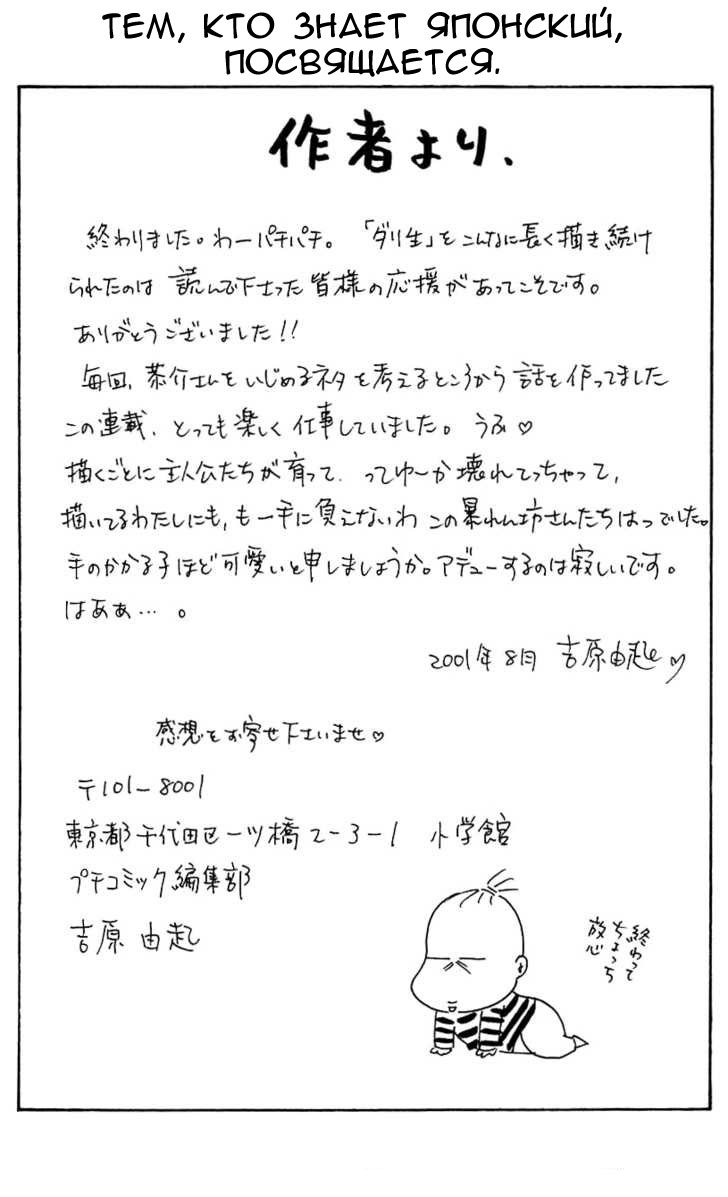 ТЕМ, КТО ЗНАЕТ ЯПОНСКИЙ,
ПОСВЯЩАЕТСЯ.
作者より、
終わりました。わーパチパチ。「ダリ生」をこんなに長く描き続け
られたのは 読んで下さった皆様の応援があってこそです。
ありがとうございました!!
毎回、恭介さんをいじめるネタを考えるところから話を作ってました
この連載、とっても楽しく仕事していました。うふ♡
描くごとに主人公たちが育って、ってゆ〜か壊れてっちゃって、
描いてるわたしにも、もー手に負えないわ この暴れん坊さんたちはっでした。
手のかかる子ほど可愛いと申しましょうか。アデューするのは寂しいです。
はあぁ…。
2001年8月 吉原由起♡
感想をお寄せ下さいませ♡
〒101-8001
東京都千代田区一ツ橋2-3-1 小学館
プチコミック編集部
吉原由起
終わって
ちょっち
放心